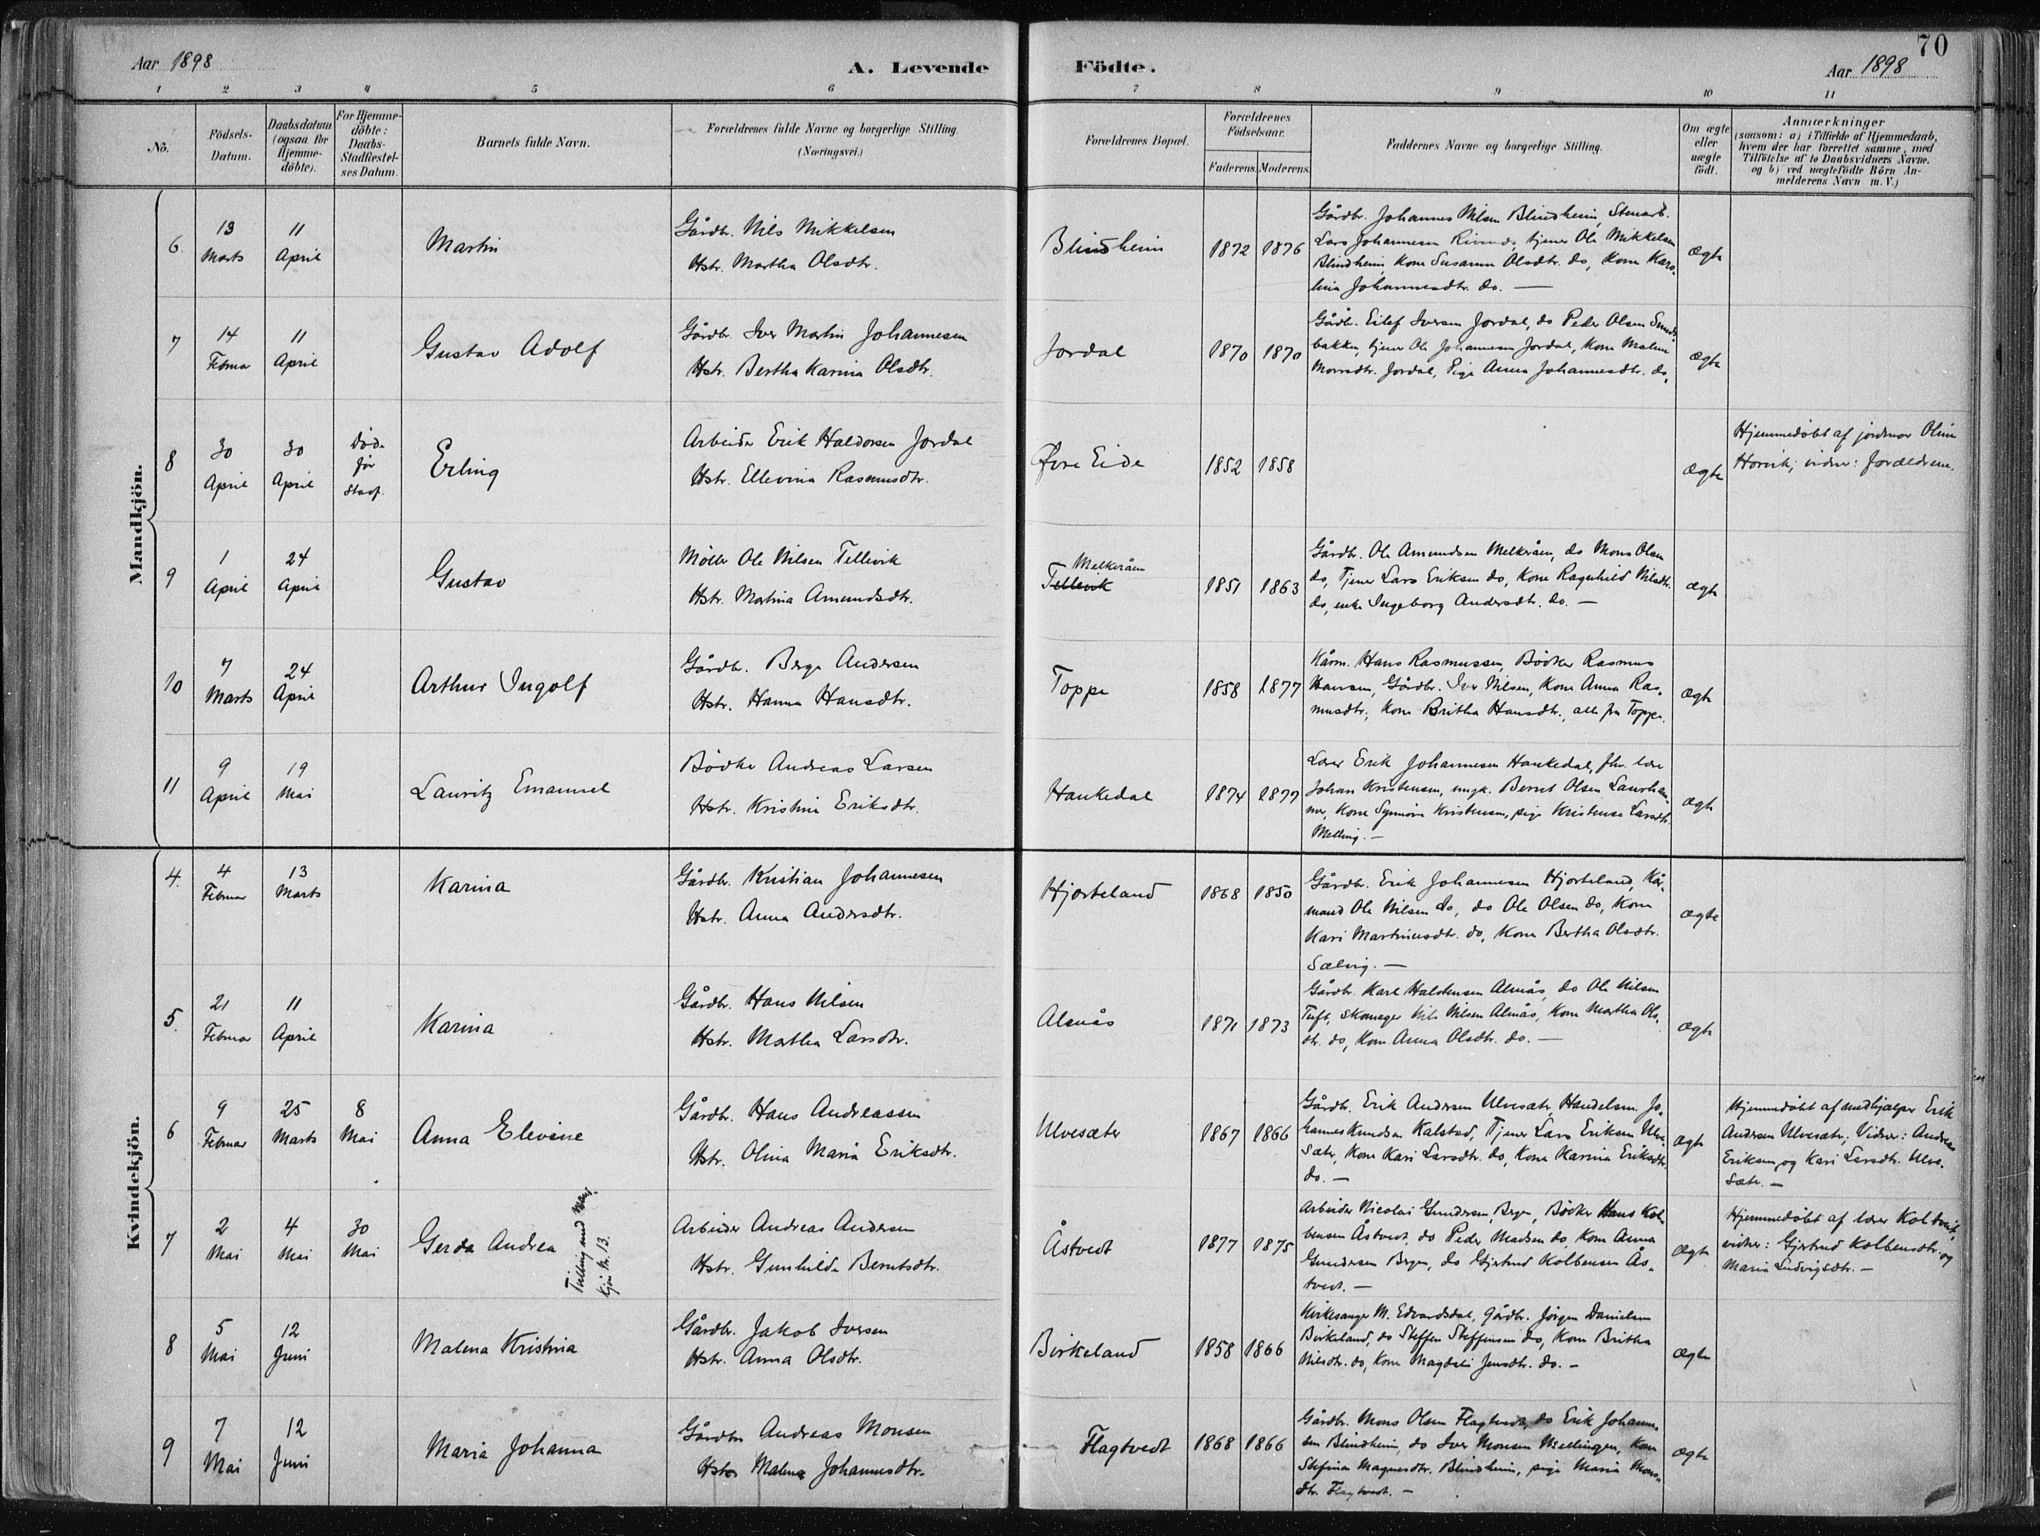 70
Aar 1898
A. Levende
Födte.
Aar 1898
1 2 3 4 5 6 7 8 9 10 11
No.
Födsels-
Datum.
Daabsdatum
(ogsaa for
Hjemme-
döbte).
For Hjemme-
döbte:
Daabs-
Stadfæstel-
ses Datum.
Barnets fulde Navn.
Forældrenes fulde Navne og borgerlige Stilling.
(Næringsvei.)
Forældrenes Bopæl.
Forældrenes
Födselsaar.
Faderens. Moderens.
Faddernes Navne og borgerlige Stilling.
Om ægte
eller
uægte
födt.
Anmærkninger
(saasom: a) i Tilfælde af Hjemmedaab,
hvem der har forrettet samme, med
Tilföielse af to Daabsvidners Navne,
og b) ved uægtefödte Börn An-
melderens Navn m. V.)
Mandkjön.
6.
13
Marts
11
April
Martin
Gårdbr. Nils Mikkelsen
Hstr. Martha Olsdtr.
Blindheim
1872 1876
Gårdbr. Johannes Nilsen Blindheim, Stenarb.
Lars Johannesen, tjener Ole Mikkelsen
Blindheim, Kone Susanne Olsdtr. do, Kone Karo-
lina Johannesdtr. do. —
Ægte
7
14
Februar
11
April
Gustav Adolf
Gårdbr. Iver Martin Johannesen
Hstr. Bertha Karina Olsdtr.
Jordal
1870 1870
Gårdbr. Eilef Iversen Jordal, do Peder Olsen
bakken, tjener Ole Johannesen Jordal, Kone Malene
Monsdtr. Jordal, Pige Anna Johannesdtr. do.
Ægte
8
30
April
30
April
Død
før
Stadf.
Erling
Arbeider Erik Haldorsen Jordal
Hstr. Ellevina Rasmusdtr.
Øvre Eide
1852 1858
Ægte
Hjemmedøbt af jordmor Oline
Horvik; vidner: forældrene.
9
1
April
24
April
Gustav
Møller Ole Nilsen Tellevik
Hstr. Martina Amundsdtr.
Melkeråen
Tellevik
1851 1863
Gårdbr. Ole Amundsen Melkeråen, do Mons Olsen
do, Tjener Lars Eriksen do, Kone Ragnhild Nilsdtr.
do, enke Ingeborg Andersdtr. do. —
Ægte
10
7
Marts
24
April
Arthur Ingolf
Gårdbr. Berge Andersen
Hstr. Hanna Hansdtr.
Toppe
1858 1877
Kårm. Hans Rasmussen, Bødker Rasmus
Hansen, Gårdbr. Iver Nilsen, Kone Anna Ras-
musdtr, Kone Britha Hansdtr., alle fra Toppe.
Ægte
11
9
April
19
Mai
Lauritz Emanuel
Bødker Andreas Larsen
Hstr. Kristine Eriksdtr.
Haukedal
1874 1877
Lærer Erik Johannesen Haukedal, fhv. lærer
Johan Kristensen, ungk. Bernt Olsen
Kone Synnøve Kristensen, pige Kristense Larsdtr.
Melling. —
Ægte
Kvindekjön.
4.
4
Februar
13
Marts
Karina
Gårdbr. Kristian Johannesen
Hstr. Anna Andersdtr.
Hjorteland
1868 1850
Gårdbr. Erik Johannesen Hjorteland, Kår-
mand Ole Nilsen do, do Ole Olsen do, Kone
Kari Martinusdtr. do, Kone Bertha Olsdtr.
Sælvig. —
Ægte
5.
21
Februar
11
April
Karina
Gårdbr. Hans Nilsen
Hstr. Martha Larsdtr.
Almås
1871 1873
Gårdbr. Karl Halstensen Almås, do Ole Nilsen
Tuft, skomager Nils Nilsen Almås, Kone Martha Ols-
dtr. do, Kone Anna Olsdtr. do. —
Ægte
6
9
Februar
25
Marts
8
Mai
Anna Elevine
Gårdbr. Hans Andreassen
Hstr. Olina Maria Eriksdtr.
Ulvesæter
1867 1866
Gårdbr. Erik Andersen Ulvesæter, Handelsm. Jo-
hannes Knudsen Kalstad, Tjener Lars Eriksen Ulve-
sæter, Kone Kari Larsdtr. do, Kone Karina Eriksdtr.
do. —
Ægte
Hjemmedøbt af medhjælper Erik
Andersen Ulvesæter; Vidner: Andreas
Eriksen og Kari Larsdtr. Ulve-
sæter. —
7
2
Mai
4
Mai
30
Mai
Gerda Andrea
Tvilling med Mkj.
Nr. 13.
Arbeider Andreas Andersen
Hstr. Gunhilde Berntsdtr.
Åstvedt
1877 1875
Arbeider Nicolai Gundersen, Bergen, Bødker Hans Kol-
bensen Åstvedt, do Peder Madsen do, Kone Anna
Gundersen Bergen, do Gjertrud Kolbensen Ås-
tvedt. —
Ægte
Hjemmedøbt af lærer Koltveit,
vidner: Gjertrud Kolbensdtr. og
Maria Ludvigsdtr. —
8
5
Mai
12
Juni
Malena Kristina
Gårdbr. Jakob Iversen
Hstr. Anna Olsdtr.
Birkeland
1858 1866
Kirkesanger M. Edvardsdal, Gårdbr. Jørgen Danielsen
Birkeland, do Steffen Steffensen do, Kone Britha
Nilsdtr. do, Kone Magdeli Jensdtr. do. —
Ægte
9
7
Mai
12
Juni
Maria Johanna
Gårdbr. Andreas Monsen
Hstr. Malena Johannesdtr.
Flagtvedt
1868 1866
Gårdbr. Mons Olsen Flagtvedt, do Erik Johanne-
sen Blindheim, do Iver Monsen Mellingen, Kone
Stefina Magnesdtr. Blindheim, pige Maria Mons-
dtr. Flagtvedt. —
Ægte